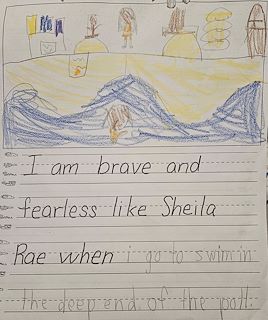 I am brave and
fearless like Sheila
Rae when i go to swim in
the deep end of the poll.